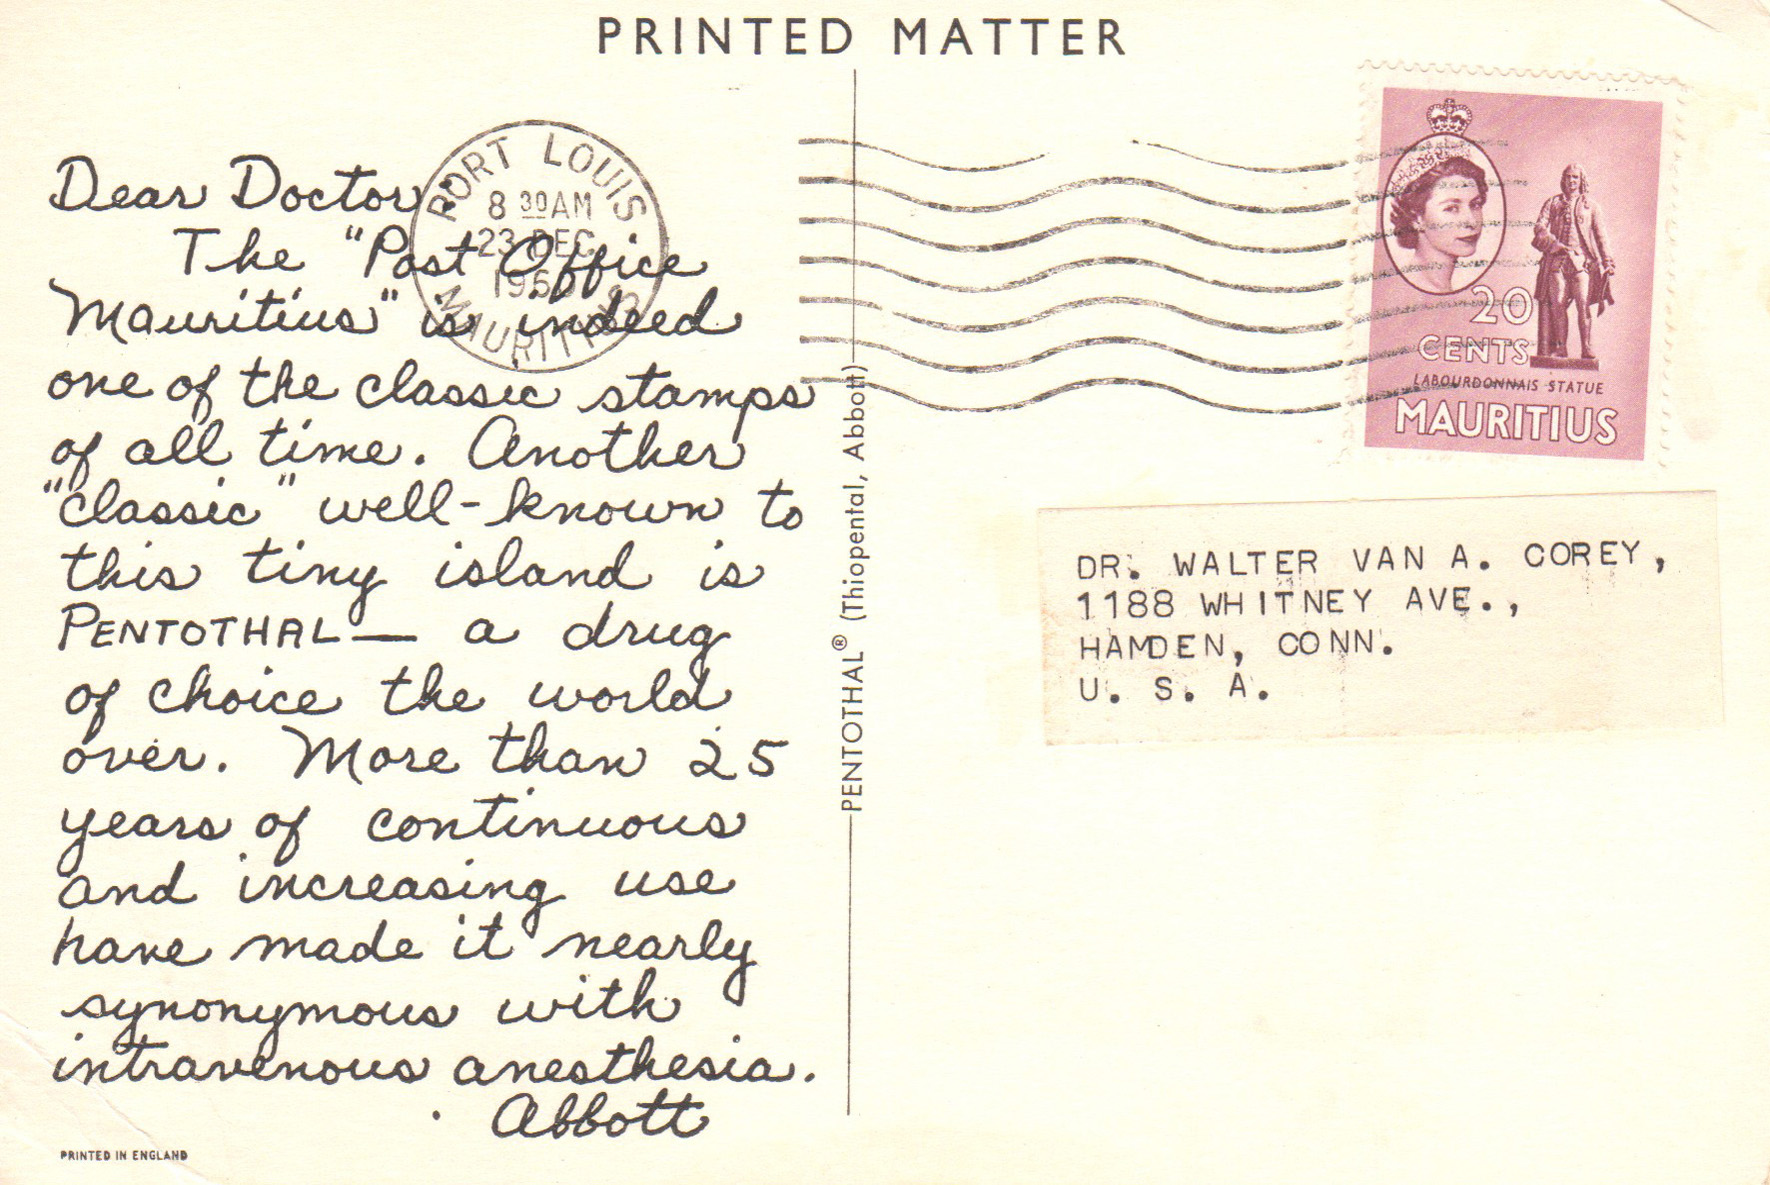 PRINTED MATTER
Dear Doctor:
The "Post Office
Mauritius" is indeed
one of the classic stamps
of all time. Another
"classic" well-known to
this tiny island is
PENTOTHAL— a drug
of choice the world
over. More than 25
years of continuous
and increasing use
have made it nearly
synonymous with
intravenous anesthesia.
Abbott
PRINTED IN ENGLAND
PORT LOUIS
8 30AM
23 DEC
MAURITIUS
PENTOTHAL® (Thiopental, Abbott)
20
CENTS
LABOURDONNAIS STATUE
MAURITIUS
DR. WALTER VAN A. COREY,
1188 WHITNEY AVE.,
HAMDEN, CONN.
U. S. A.